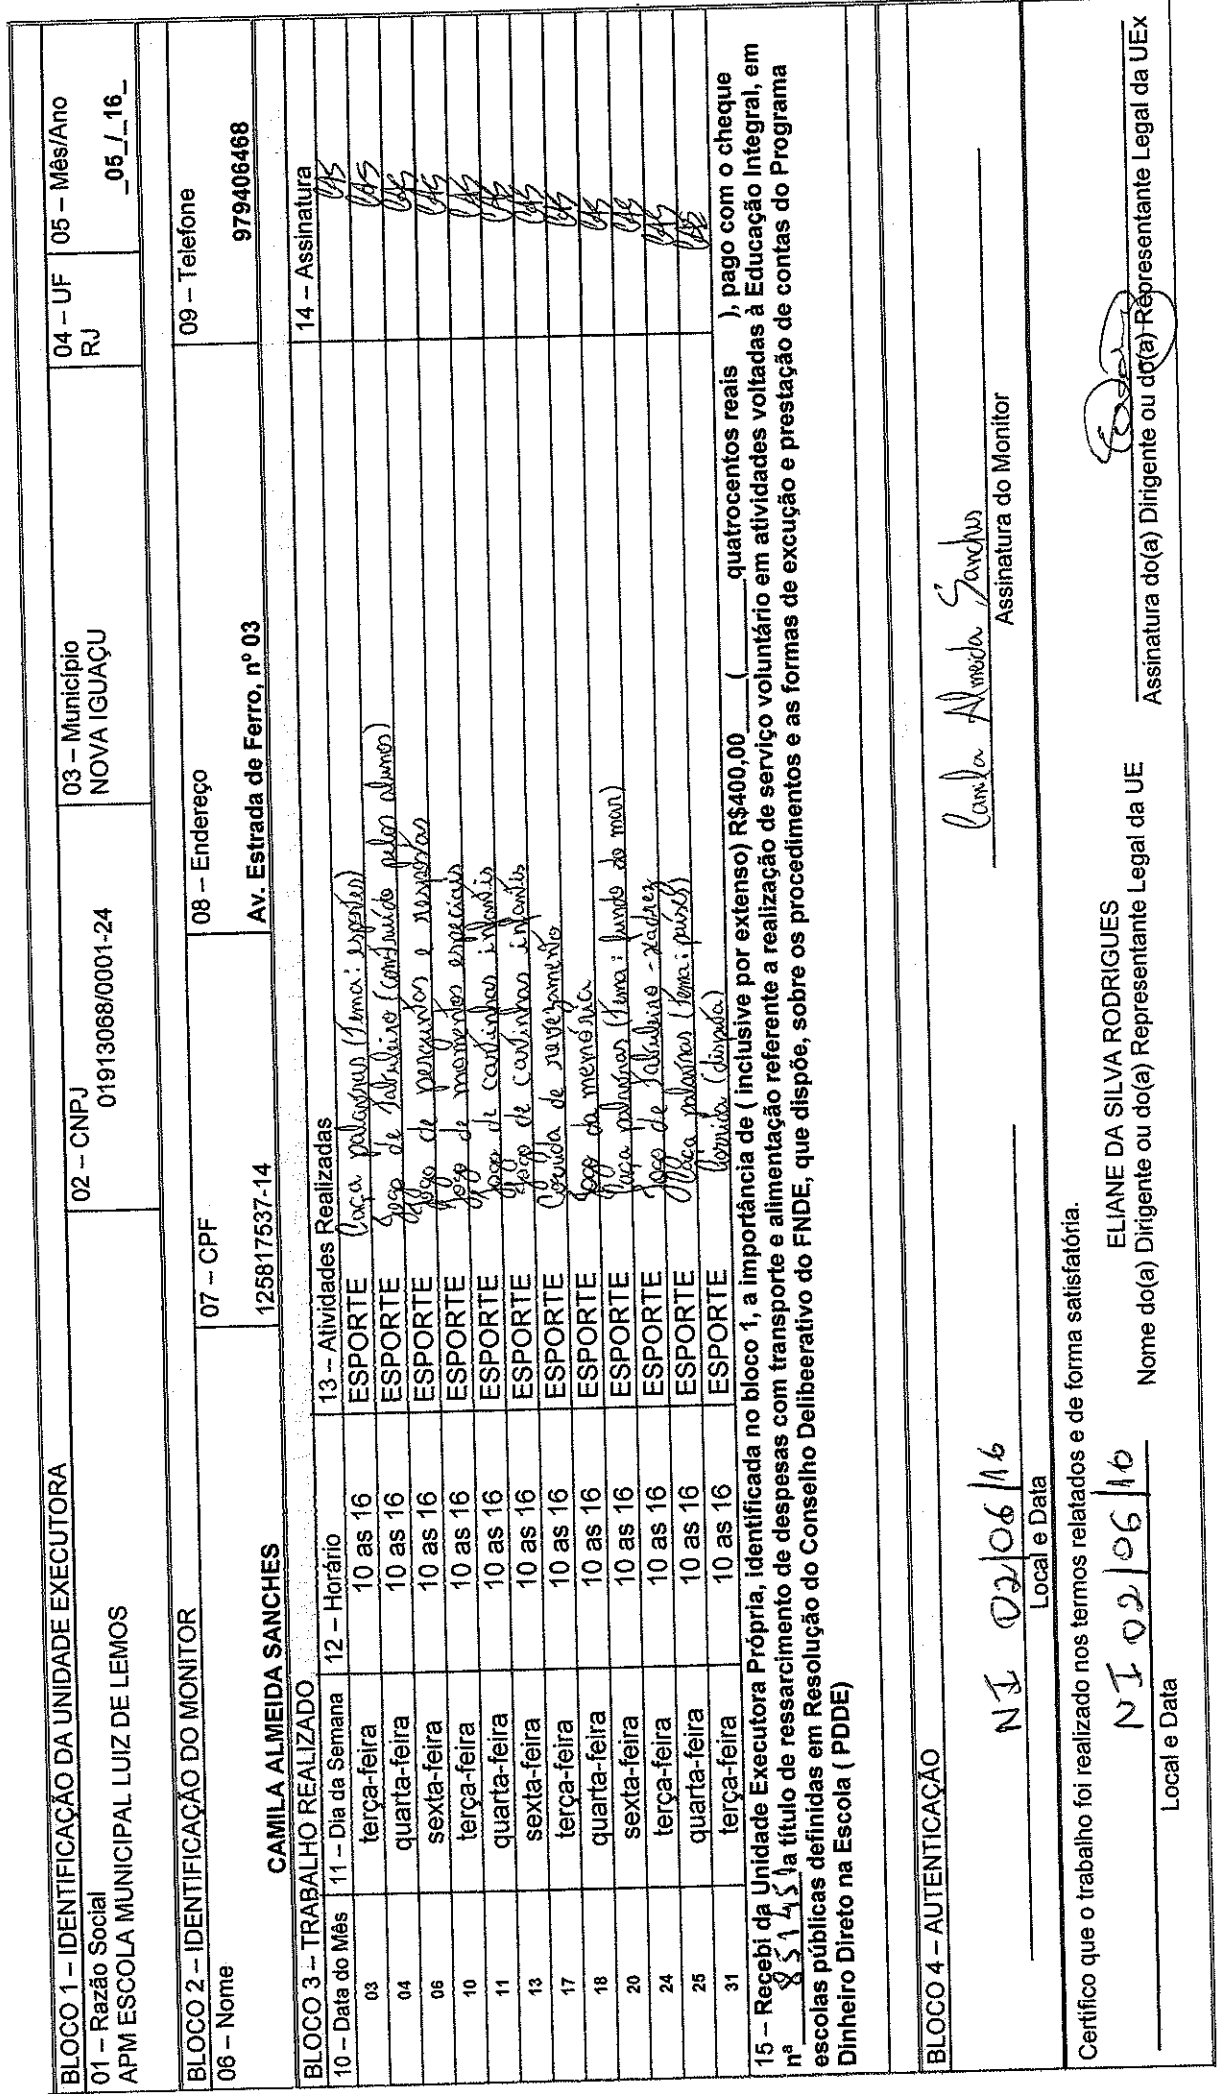 BLOCO 1 – IDENTIFICAÇÃO DA UNIDADE EXECUTORA
01 – Razão Social
APM ESCOLA MUNICIPAL LUIZ DE LEMOS
02 – CNPJ
01913068/0001-24
03 – Município
NOVA IGUAÇU
04 – UF
RJ
05 – Mês/Ano
_05_/_16_
BLOCO 2 – IDENTIFICAÇÃO DO MONITOR
06 – Nome
CAMILA ALMEIDA SANCHES
07 – CPF
125817537-14
08 – Endereço
Av. Estrada de Ferro, nº 03
09 – Telefone
979406468
BLOCO 3 – TRABALHO REALIZADO
10 – Data do Mês 11 – Dia da Semana 12 – Horário 13 – Atividades Realizadas 14 – Assinatura
03 terça-feira 10 as 16 ESPORTE Caça palavras (Tema: esportes) CAS
04 quarta-feira 10 as 16 ESPORTE Jogo de Tabuleiro (construído pelos alunos) CAS
06 sexta-feira 10 as 16 ESPORTE Jogo de perguntas e respostas CAS
10 terça-feira 10 as 16 ESPORTE Jogo de momentos especiais CAS
11 quarta-feira 10 as 16 ESPORTE Jogo de cartinhas infantis CAS
13 sexta-feira 10 as 16 ESPORTE Jogo de cartinhas infantis CAS
17 terça-feira 10 as 16 ESPORTE Corrida de revezamento CAS
18 quarta-feira 10 as 16 ESPORTE Jogo da memória CAS
20 sexta-feira 10 as 16 ESPORTE Caça palavras (Tema: fundo do mar) CAS
24 terça-feira 10 as 16 ESPORTE Jogo de Tabuleiro - xadrez CAS
25 quarta-feira 10 as 16 ESPORTE Caça palavras (Tema: países) CAS
31 terça-feira 10 as 16 ESPORTE Corrida (disputa) CAS
15 – Recebi da Unidade Executora Própria, identificada no bloco 1, a importância de ( inclusive por extenso) R$400,00___(____quatrocentos reais ), pago com o cheque
nª 851451 a título de ressarcimento de despesas com transporte e alimentação referente a realização de serviço voluntário em atividades voltadas à Educação Integral, em
escolas públicas definidas em Resolução do Conselho Delibeerativo do FNDE, que dispõe, sobre os procedimentos e as formas de excução e prestação de contas do Programa
Dinheiro Direto na Escola ( PDDE)
BLOCO 4 – AUTENTICAÇÃO
NI 02/06/16
Local e Data
Camila Almeida Sanches
Assinatura do Monitor
Certifico que o trabalho foi realizado nos termos relatados e de forma satisfatória.
NI 02/06/16
Local e Data
ELIANE DA SILVA RODRIGUES
Nome do(a) Dirigente ou do(a) Representante Legal da UE
Assinatura do(a) Dirigente ou do(a) Representante Legal da UEx